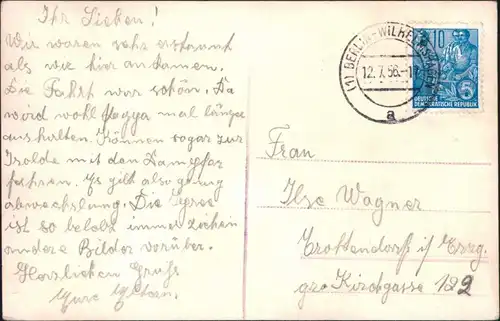 Ihr Lieben!
Wir waren sehr erstaunt
als wir hier ankamen.
Die Fahrt war schön. Da
wird wohl mal länger
aushalten. Können sogar zur
Isolde mit den Dampfer
fahren. Es gibt also genug
abwechslung. Die Spree
ist so belebt immer ziehen
andere Bilder vorüber.
Herzlichen Gruß
Eure Eltern.
(1) BERLIN-WILHELMSHAGEN
12.7.56.-1
a
10
DEUTSCHE
DEMOKRATISCHE REPUBLIK
Frau
Ilse Wagner
Crottendorf i/ Erzg.
gr. Kirchgasse 122